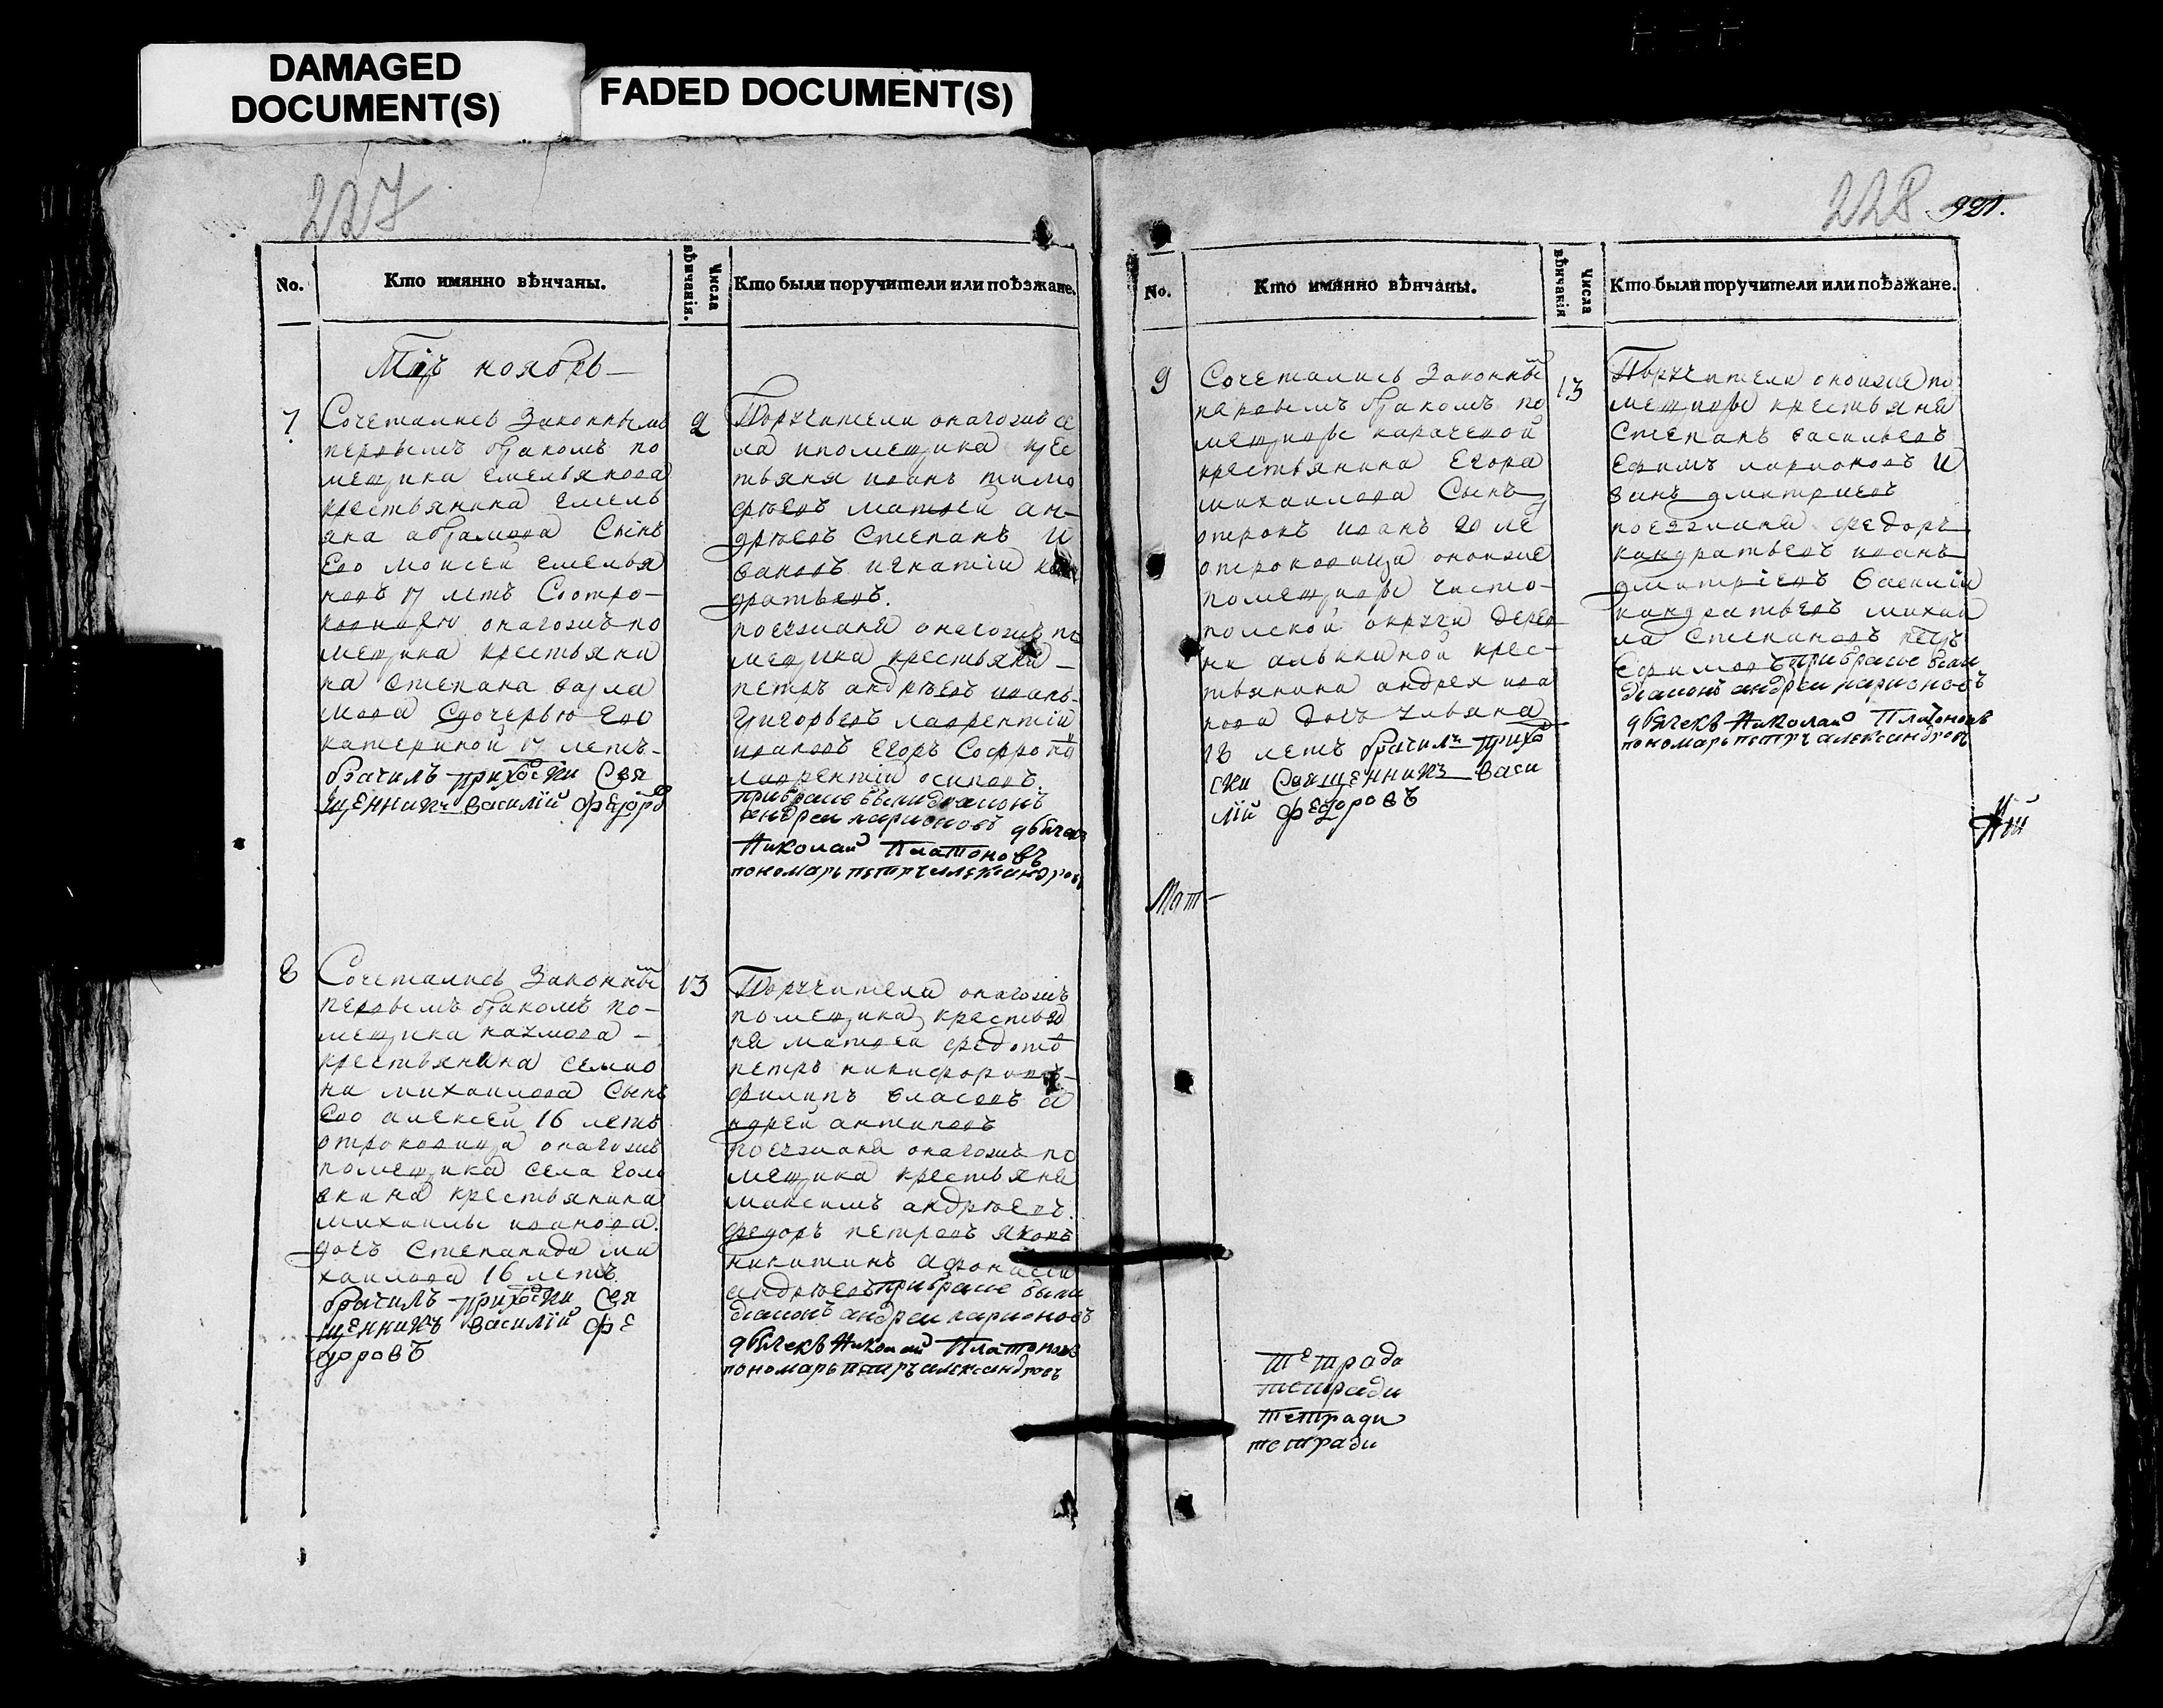 DAMAGED
DOCUMENT(S)
FADED DOCUMENT(S)
227
No.
Кто имянно вѣнчаны.
Числа
вѣнчанія.
Кто были поручители или поѣзжане.
Мцъ ноябрь
7.
Сочетались законнымъ
первымъ бракомъ по
мещика емельянова
крестьянина емель
яна абрамова Сынъ
Его моисей емелья
новъ 17 летъ Сотро-
ковицею онагожъ по
мещика крестьяни
на степана
Сдочерью Его
катериной 17 летъ
брачилъ приходски Свя
щенникъ василій федоро
2
Поручители онагожъ се
ла ипомещика крес
тьяня иванъ тимо
фѣевъ матвей ан-
дрѣевъ Степанъ И
вановъ игнатій кон
дратьевъ.
поезжаня онагожъ по
мещика крестьяня
петръ андрѣевъ иванъ
григорьевъ лаврентій
ивановъ Егоръ Софро
лаврентій осиповъ.
прибраке были дьяконъ
андреи ларионовъ дьячекъ
Николай Платоновъ
пономарь петръ александровъ
8
Сочетались Законны
первымъ бракомъ по-
мещика наумова
крестьянина семио
на михаилова Сынъ
Его алексей 16 летъ
отроковица онагожъ
помещика села голо
вкина крестьянина
михаилы иванова
дочь Степанида ми
хаилова 16 летъ
брачилъ приходски Свя
щенникъ василій фе
доровъ
13
Поручители онагожъ
помещика крестья
ня матвеи федото
петръ никифоровъ
филипъ власовъ а
ндрей антиповъ
поезжаня онагожъ по
мещика крестьяня
максимъ андрѣевъ.
федоръ петровъ яковъ
никитинъ афонасеи
андрѣевъ прибраке были
дьяконъ андреи ларионовъ
дьячекъ Николай Платоновъ
пономарь петръ александровъ
228 921.
No.
Кто имянно вѣнчаны.
Числа
вѣнчанія
Кто были поручители или поѣзжане.
9
Сочетались Законны
первымъ бракомъ по
мещицы карачевой
крестьянина Егора
михаилова Сынъ
отрокъ иванъ 20 ле
отроковица онойже
помещицы чисто-
полской округи дерев
ни алькиной крес-
тьянина андрея ива
нова дочь ульяна
18 летъ брачилъ прихо
ски Священникъ васи
лій федоровъ
13
Поручители онойже по
мещицы крестьяня
Степанъ васильевъ
Ефимъ ларионовъ И
ванъ дмитриевъ
поезжаня федоръ
кандратьевъ иванъ
дмитріевъ василіи
кандратьевъ михаи
ла Степановъ петръ
Ефимовъ прибраке были
дьяконъ андреи ларионовъ
дьячекъ Николай Платоновъ
пономарь петръ александровъ
Мат-
тетрада
тетради
тетради
тетради